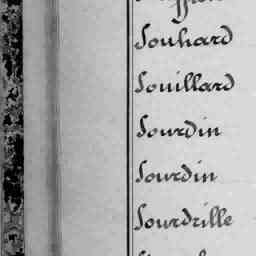 Souhard
Souillard
Sourdin
Sourdin
Sourdrille